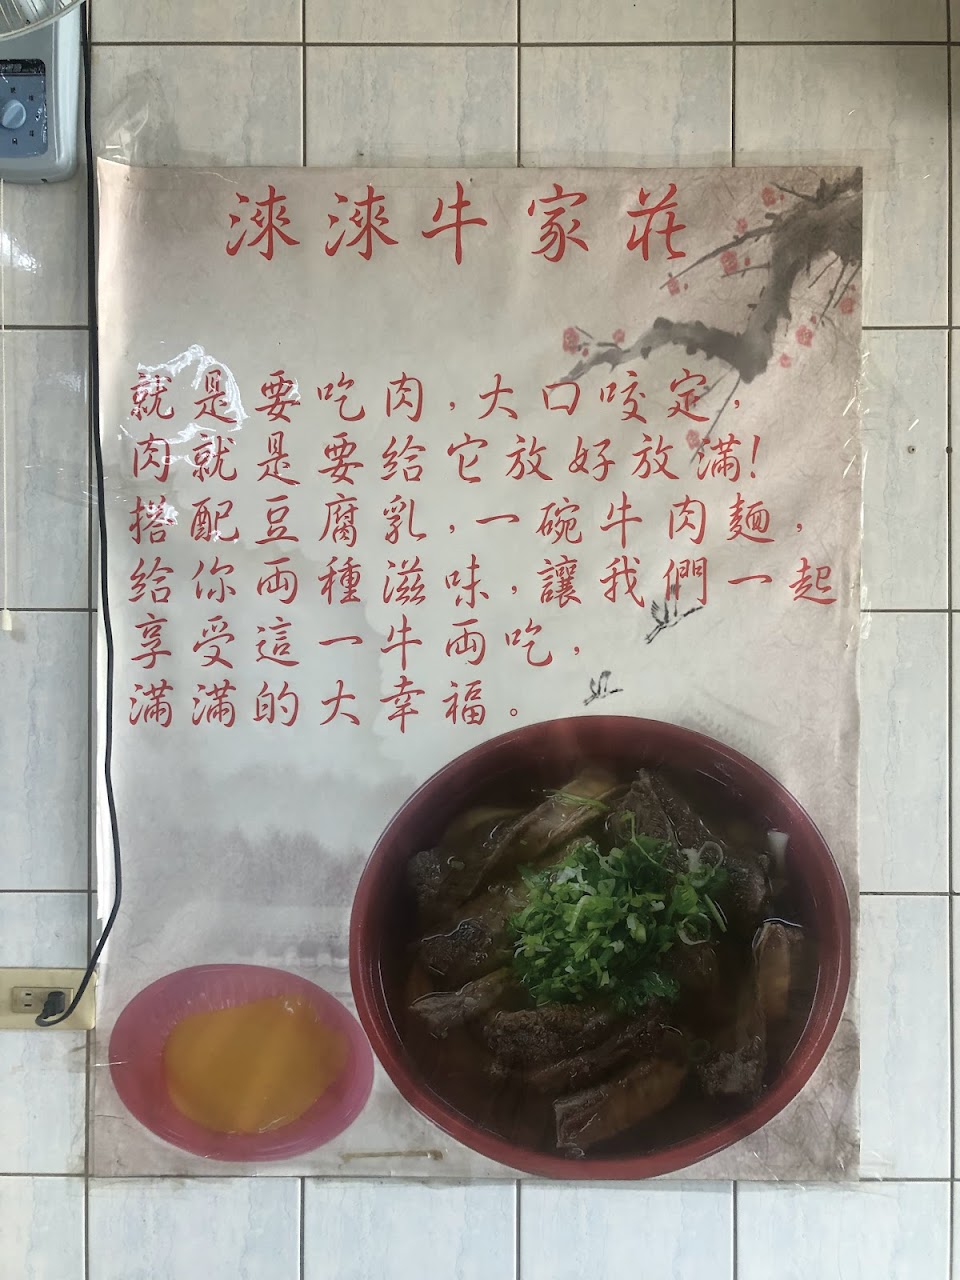 淶淶牛家莊
就是要吃肉,大口咬定,
肉就是要給它放好放滿!
搭配豆腐乳,一碗牛肉麵,
給你兩種滋味,讓我們一起
享受這一牛兩吃,
滿滿的大幸福。